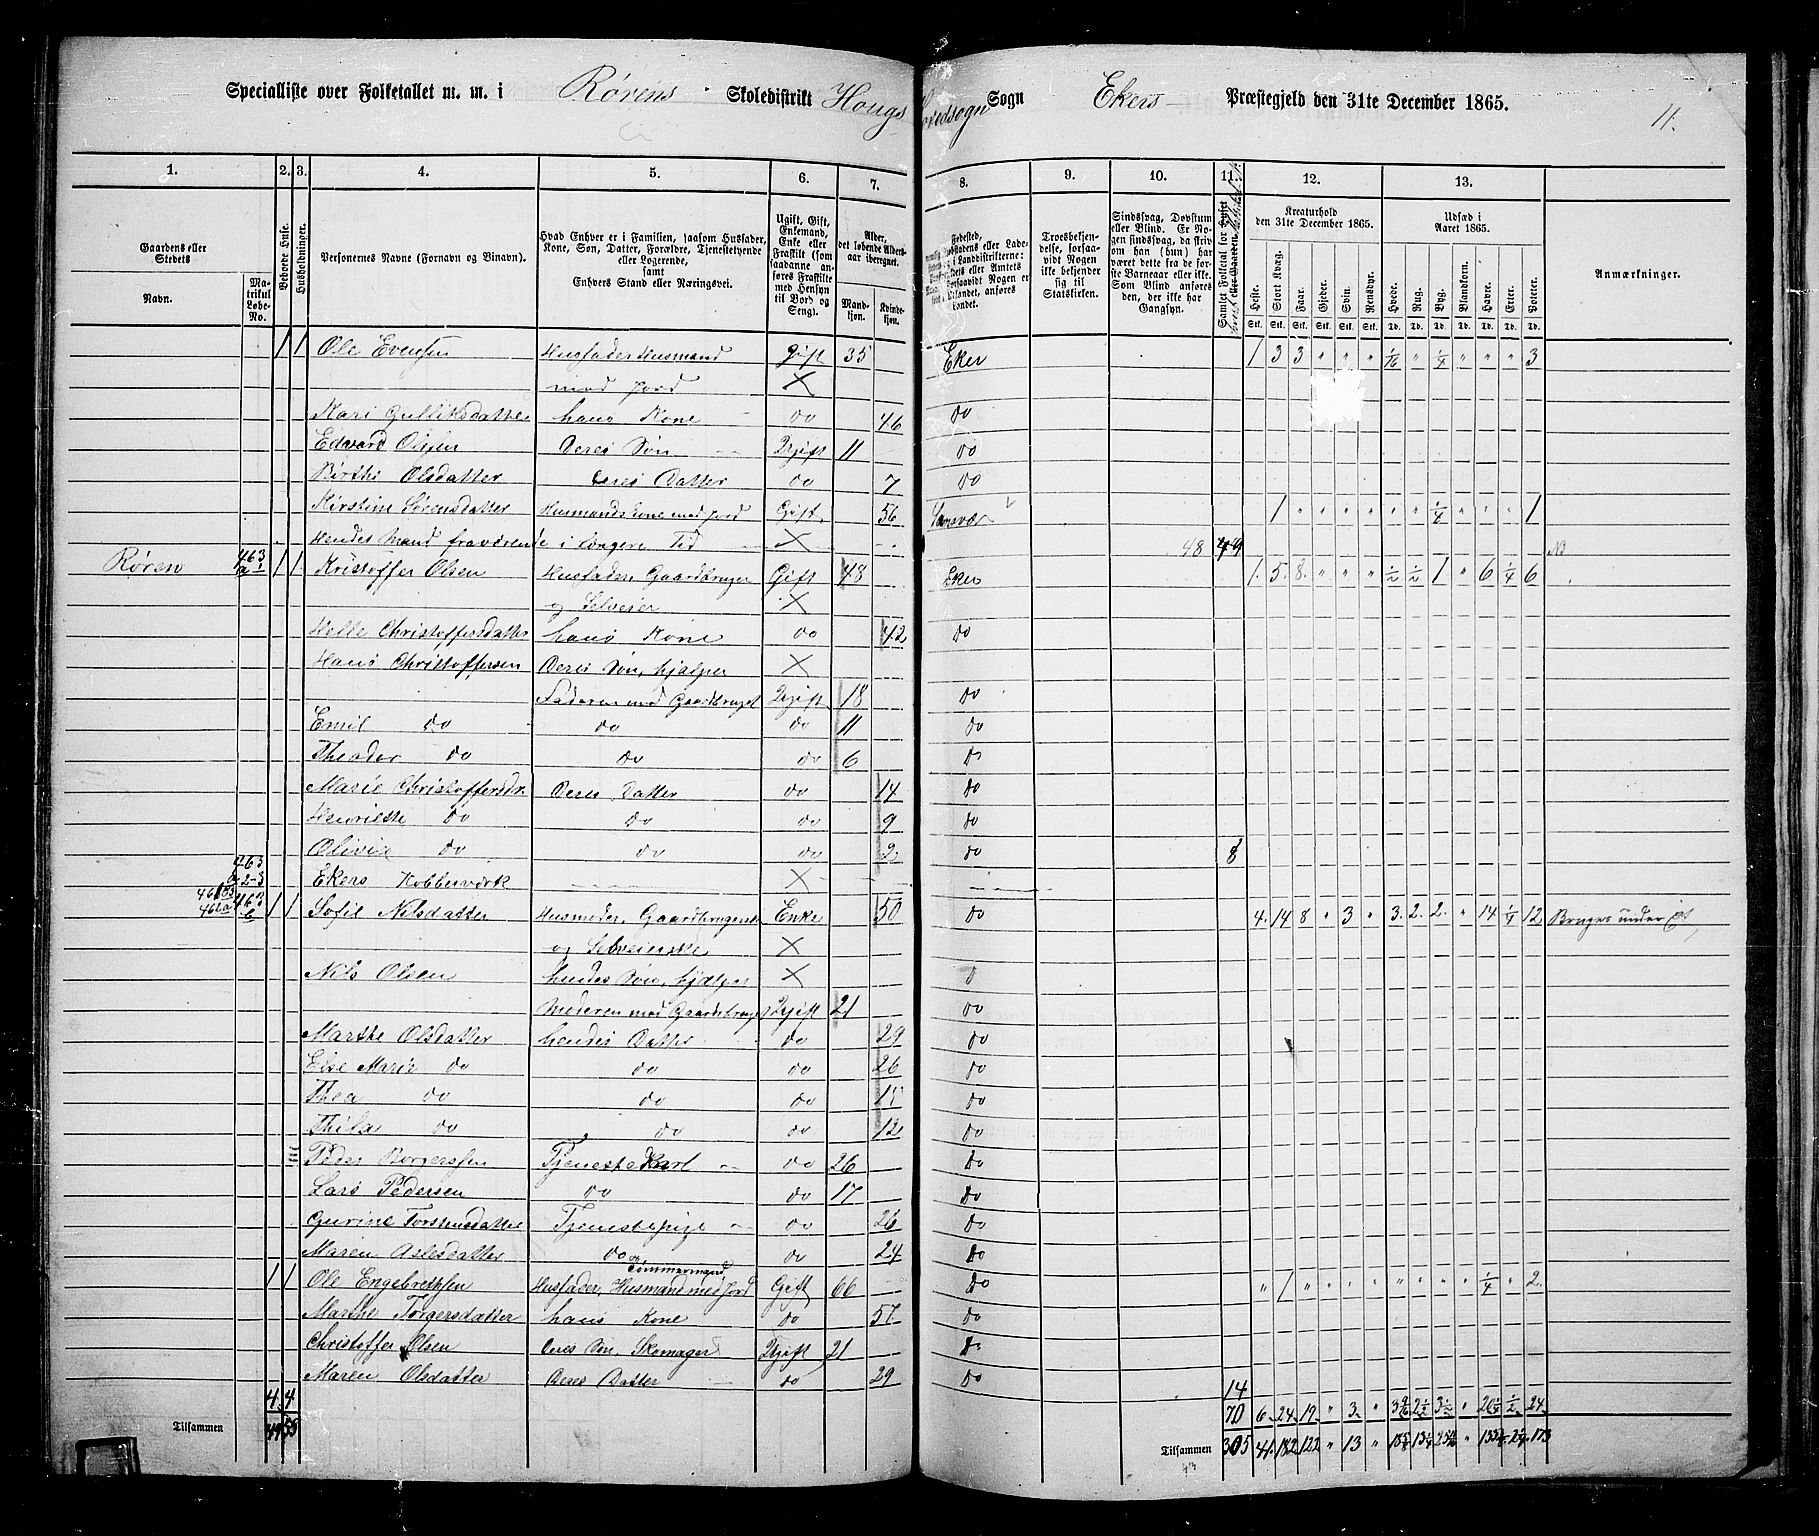 Specialliste over Folketallet m. m. i Rørens Skoledistrikt Hougs Hovedsogn Sogn Ekers Præstegjeld den 31te December 1865.
11.
1. 2. 3. 4. 5. 6. 7. 8. 9. 10. 11. 12. 13.
Gaardens eller Stedets Navn.
Matrikul Løbe-No.
Beboede Huse.
Husholdninger.
Personernes Navne (Fornavn og Binavn).
Hvad Enhver er i Familien, saasom Husfader, Kone, Søn, Datter, Forældre, Tjenestetyende eller Logerende, samt Enhvers Stand eller Næringsvei.
Ugift, Gift, Enkemand, Enke eller Fraskilt (som saadanne anføres Fraskilte med Hensyn til Bord og Seng).
Alder, det løbende Aldersaar iberegnet.
Mandkjøn. Kvindekjøn.
Troesbekjendelse, forsaavidt Nogen ikke bekjender sig til Statskirken.
Sindssvag, Døvstum eller Blind. Er Nogen sindssvag, da skrives om han (hun) har været dette fra de første Barneaar eller ikke. Som Blind anføres den, der ikke har Gangsyn.
Kreaturhold den 31te December 1865.
Udsæd i Aaret 1865.
Anmærkninger.
Heste. Stort Kvæg. Faar. Gjeder. Svin. Rensdyr. Hvede. Rug. Byg. Blandkorn. Havre. Erter. Poteter.
Stk. Stk. Stk. Stk. Stk. Stk. Td. Td. Td. Td. Td. Td. Td.
1 1 Ole Evensen Husfader Husmand Gift 35 Eker 1 3 3 " " " 1/16 " 1/4 " " " 3
med Jord X
Kari Gulliksdatter hans Kone do 46 do
Edvard Olsen Deres Søn Ugift 11 do
Birthe Olsdatter deres Datter do 7 do
Kirstine Sørensdatter Husmandskone med Jord Gift 56 Sandsvær 1 " " " " " " 1/4 " " " 1
Hendes Mand fraværende i længere Tid X 48 49
Røren 463 a 1 1 1 Kristoffer Olsen Husfader, Gaardbruger Gift 48 Eker 1. 5. 8. " " " 1/2 1/2 1 " 6 1/4 6
og Selveier X
Helle Christoffersdatter hans Kone do 42 do
Hans Christoffersen Deres Søn, hjælper X
Faderen med Gaardbruget Ugift 18 do
Emil do do do 11 do
Theodor do do do 6 do
Marie Christoffersdr. Deres Datter do 14 do
Henriette do do do 9 do
Olivia do do do 2 do 8
463 2-3 Ekers Kobberværk X
463 6 1 1 Sofie Nilsdatter Husmoder, Gaardbrugerske Enke 50 do 4. 14 8 " 3 " 3. 2. 2. " 14 1/4 12 Bruges under et,
og Selveierske X
Nils Olsen hendes Søn, hjælper X
Moderen med Gaardsbruget Ugift 21 do
Marthe Olsdatter hendes Datter do 29 do
Else Marie do do do 26 do
Thea do do do 15 do
Thila do do do 12 do
Peder Borgersen Tjenestekarl do 26 do
Lars Pedersen do do 17 do
Gurine Torstensdatter Tjenestepige do 26 do
Maren Aslesdatter do do 24 do
og Tømmermand
1 1 Ole Engebretsen Husfader, Husmand med Jord Gift 66 do " 1 " " " " " " " " 1/4 " 2.
Marthe Torgersdatter hans Kone do 57 do
Christoffer Olsen Deres Søn, Skomager Ugift 21 do
Maren Olsdatter Deres Datter do 29 do
4. 4 14
70 6 24 19 " 3 "
Tilsammen 49 55
Tilsammen 305 41. 182 122 " 13 "